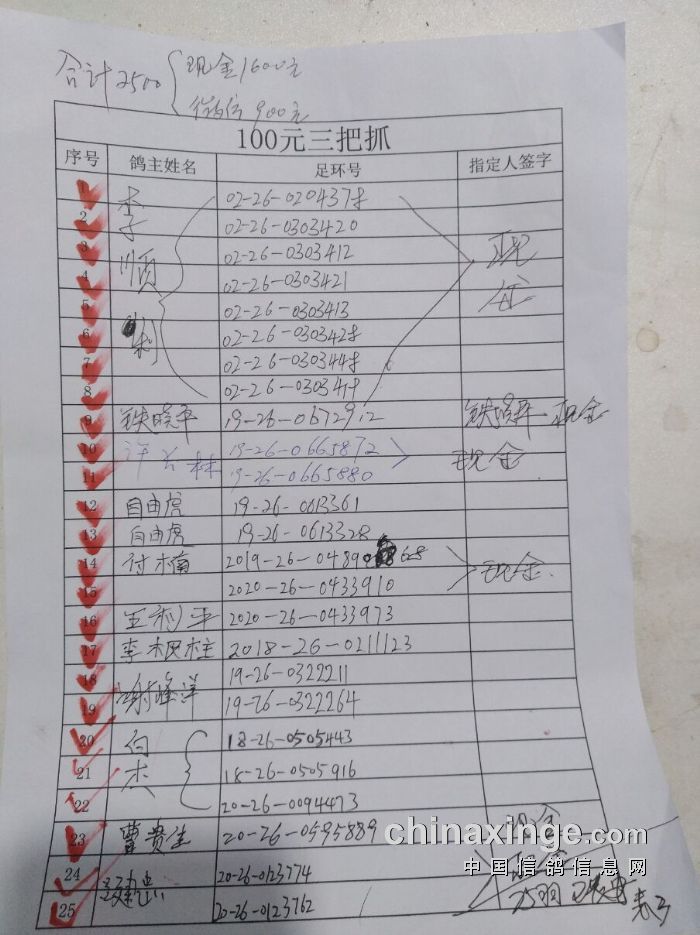 合计2500 现金1600元
微信900元
100元三把抓
序号 鸽主姓名 足环号 指定人签字
1 李子顺 02-26-0204378 现金
2 02-26-0303420
3 02-26-0303412
4 02-26-0303421
5 02-26-0303413
6 02-26-0303428
7 02-26-0303448
8
9 铁晓平 19-26-0672912 铁晓平 现金
10 许 林 19-26-0665872 现金
11 19-26-0665880
12 自由虎 19-26-0613361
13 自由虎 19-26-0613328
14 付楠 2019-26-0489 68 现金
15 2020-26-0433910
16 王利平 2020-26-0433973
17 李根柱 2018-26-0211123
18 谢峰洋 19-26-0322211
19 19-26-0322264
20 向杰 18-26-0505443
21 18-26-0505916
22 20-26-0094473
23 曹贵生 20-26-0595889 现金
24 建忠 20-26-0123774
25 20-26-0123762 25羽
chinaxinge.com
中国信鸽信息网